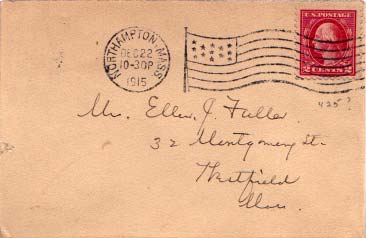 NORTHAMPTON, MASS.
DEC 22
10-30P
1915
U.S. POSTAGE
2 CENTS 2
425?
Mr. Ellen J. Fuller
32 Montgomery St.
Westfield
Mass.